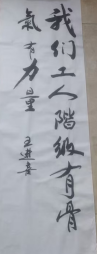 我们工人階級有骨
氣有力量
王進喜